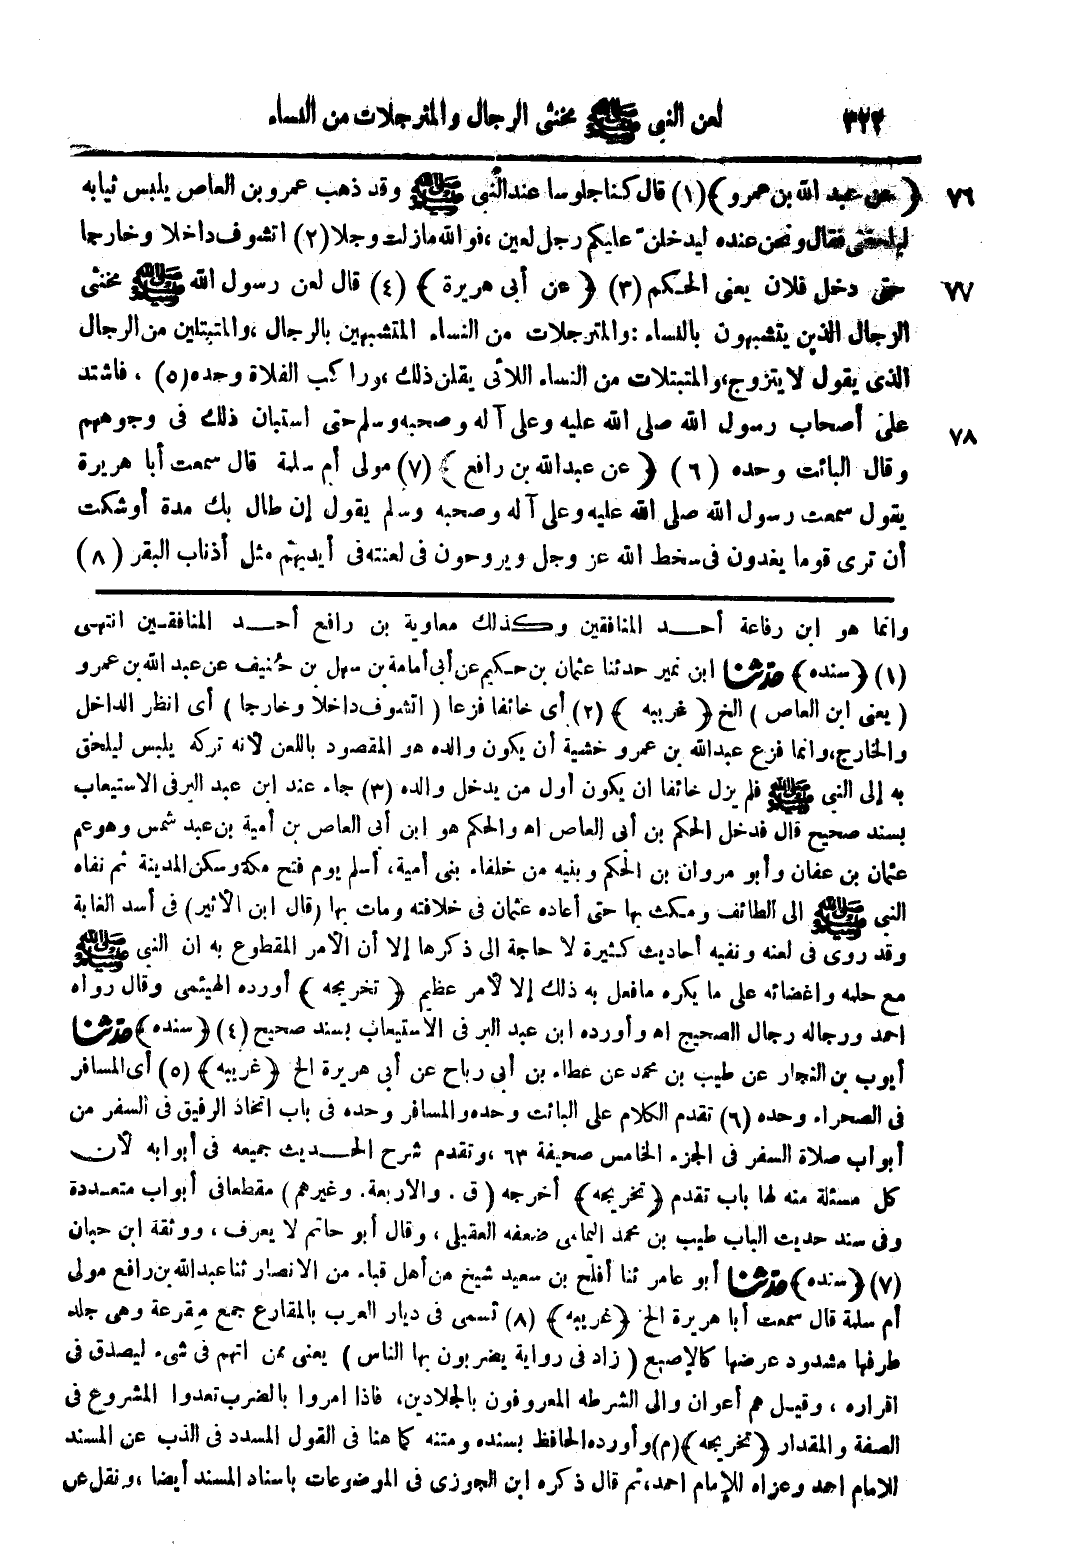 ٣٢٢ لعن النبي ﷺ مخنثي الرجال والمترجلات من النساء
٧٦ ﴿ عن عبد الله بن عمرو ﴾ (١) قال كنا جلوسا عند النبي ﷺ وقد ذهب عمرو بن العاص يلبس ثيابه
ليلحقني فقال ونحن عنده ليدخلن عليكم رجل لعين ، فوالله مازلت وجلا (٢) اتشوف داخلا وخارجا
٧٧ حتى دخل فلان يعنى الحكم (٣) ﴿ عن أبى هريرة ﴾ (٤) قال لعن رسول الله ﷺ مخنثى
الرجال الذين يتشبهون بالنساء : والمترجلات من النساء المتشبهين بالرجال ، والمتبتلين من الرجال
الذى يقول لا يتزوج ، والمتبتلات من النساء اللائى يقلن ذلك ، وراكب الفلاة وحده (٥) ، فاشتد
على أصحاب رسول الله صلى الله عليه وعلى آله وصحبه وسلم حتى استبان ذلك فى وجوههم
٧٨ وقال البائت وحده (٦) ﴿ عن عبدالله بن رافع ﴾ (٧) مولى أم سلمة قال سمعت أبا هريرة
يقول سمعت رسول الله صلى الله عليه وعلى آله وصحبه وسلم يقول إن طال بك مدة أوشكت
أن ترى قوما يغدون فى سخط الله عز وجل ويروحون فى لعنته فى أيديهم مثل أذناب البقر (٨)
وانما هو ابن رفاعة أحد المنافقين وكذلك معاوية بن رافع أحد المنافقين انتهى
(١) ﴿ سنده ﴾ حدثنا ابن نمير حدثنا عثمان بن حكيم عن أبى أمامة بن سهل بن حُنيف عن عبد الله بن عمرو
(يعنى ابن العاص) الخ ﴿ غريبه ﴾ (٢) أى خائفا فزعا (اتشوف داخلا وخارجا) أى انظر الداخل
والخارج، وانما فزع عبدالله بن عمرو خشية أن يكون والده هو المقصود باللعن لانه تركه يلبس ليلحق
به إلى النبي ﷺ فلم يزل خائفا ان يكون أول من يدخل والده (٣) جاء عند ابن عبد البر فى الاستيعاب
بسند صحيح قال فدخل الحكم بن أبى العاص اه والحكم هو ابن أبى العاص بن أمية بن عبد شمس وهو عم
عثمان بن عفان وأبو مروان بن الحكم وبنيه من خلفاء بنى أمية، أسلم يوم فتح مكة وسكن المدينة ثم نفاه
النبي ﷺ الى الطائف ومكث بها حتى أعاده عثمان فى خلافته ومات بها (قال ابن الأثير) فى أسد الغابة
وقد روى فى لعنه ونفيه أحاديث كثيرة لا حاجة الى ذكرها إلا أن الأمر المقطوع به ان النبي ﷺ
مع حلمه واغضائه على ما يكره مافعل به ذلك إلا لأمر عظيم ﴿ تخريجه ﴾ أورده الهيثمى وقال رواه
احمد ورجاله رجال الصحيح اه وأورده ابن عبد البر فى الاستيعاب بسند صحيح (٤) ﴿ سنده ﴾ حدثنا
أيوب بن النجار عن طيب بن محمد عن عطاء بن أبى رباح عن أبى هريرة الخ ﴿ غريبه ﴾ (٥) أى المسافر
فى الصحراء وحده (٦) تقدم الكلام على البائت وحده والمسافر وحده فى باب اتخاذ الرفيق فى السفر من
أبواب صلاة السفر فى الجزء الخامس صحيفة ٦٣ ، وتقدم شرح الحديث جميعه فى أبوابه لأن
كل مسئلة منه لها باب تقدم ﴿ تخريجه ﴾ أخرجه (ق . والاربعة . وغيرهم) مقطعا فى أبواب متعددة
وفى سند حديث الباب طيب بن محمد اليمامى ضعفه العقيلى ، وقال أبو حاتم لا يعرف ، ووثقة ابن حبان
(٧) ﴿ سنده ﴾ حدثنا أبو عامر ثنا أفلح بن سعيد شيخ من أهل قباء من الانصار ثنا عبدالله بن رافع مولى
أم سلمة قال سمعت أبا هريرة الخ ﴿ غريبه ﴾ (٨) تسمى فى ديار العرب بالمقارع جمع مِقرعة وهى جلد
طرفها مشدود عرضها كالإصبع (زاد فى رواية يضربون بها الناس) يعنى ممن اتهم فى شىء ليصدق فى
اقراره ، وقيل هم أعوان والى الشرطه المعروفون بالجلادين، فاذا امروا بالضرب تعدوا المشروع فى
الصفة والمقدار ﴿ تخريجه ﴾ (م) وأورده الحافظ بسنده ومتنه كما هنا فى القول المسدد فى الذب عن المسند
للامام احمد وعزاه للإمام احمد، ثم قال ذكره ابن الجوزى فى الموضوعات باسناد المسند أيضا ، ونقل عن